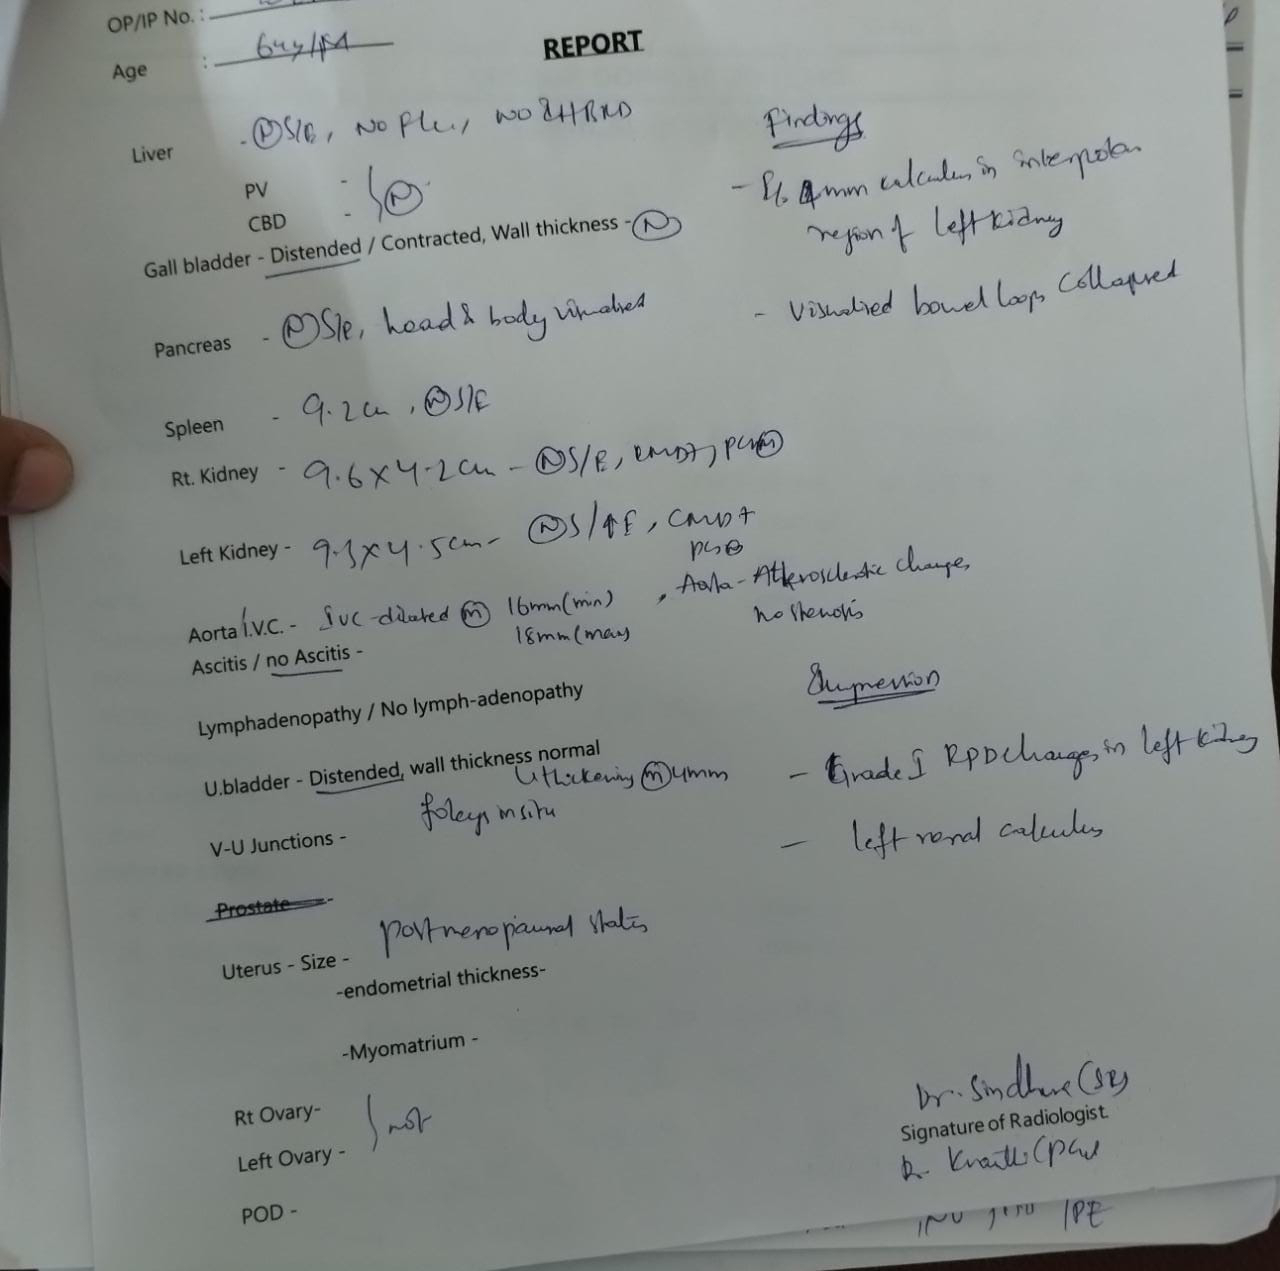 OP/IP No. :
Age :
REPORT
Liver - (N) S/E, No FLL, No IHBRD
PV -
CBD - (N)
Gall bladder - Distended / Contracted, Wall thickness - (N)
Pancreas - (N) S/E, head & body visualised
Spleen - 9.2cm, (N) S/E
Rt. Kidney - 9.6 x 4.2cm - (N) S/E, CMD+, PCS (N)
Left Kidney - 9.3 x 4.5cm - (N) S/↑E, CMD+
PCS (N)
Aorta / I.V.C. - IVC - dilated (m) 16mm (min) , Aorta - Atherosclerotic changes
18mm (max) no stenosis
Ascitis / no Ascitis -
Lymphadenopathy / No lymph-adenopathy
U.bladder - Distended, wall thickness normal
thickening (m) 4mm
foleys insitu
V-U Junctions -
Prostate -
Uterus - Size - postmenopausal status
-endometrial thickness-
-Myomatrium -
Rt Ovary-
Left Ovary -
POD -
Findings
- 4mm calculus in interpolar
region of left kidney
- Visualised bowel loops collapsed
Impression
- Grade I RPD changes in left kidney
- left renal calculus
Dr.
Signature of Radiologist